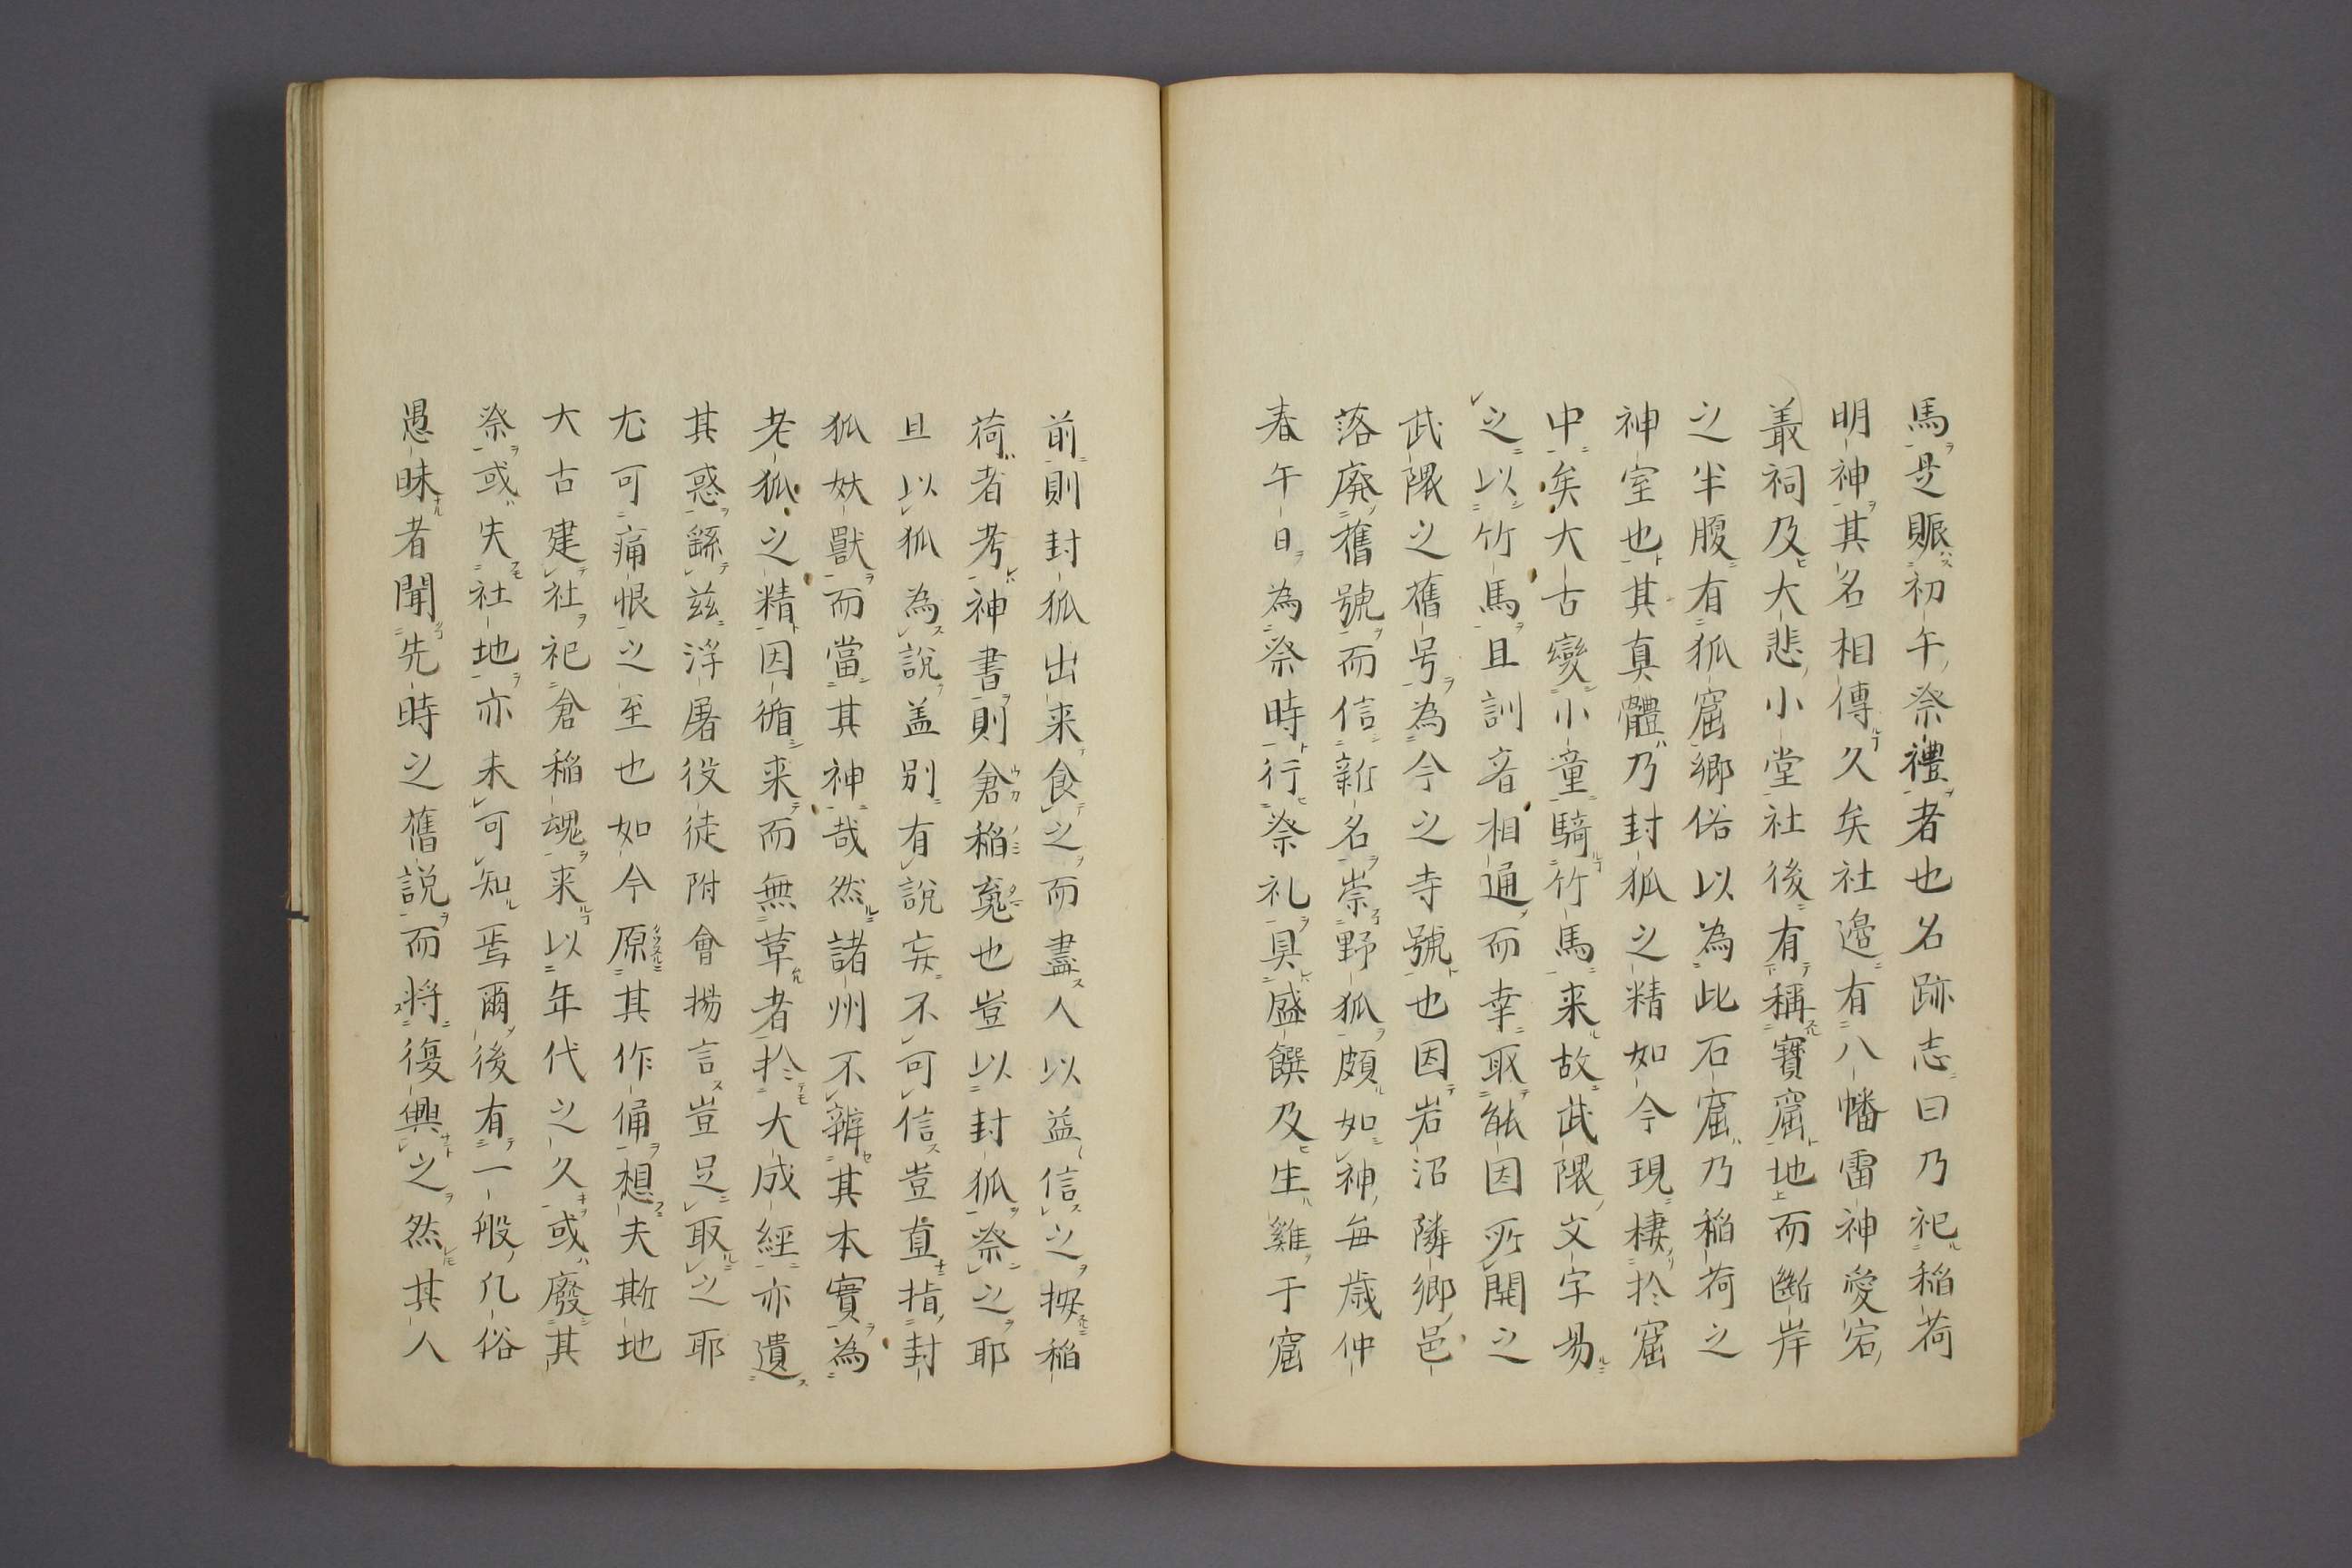 馬是賑初午祭禮者也名跡志曰乃祀稲荷
明神其名相傳久矣社邉有八幡雷神愛宕
叢祠及大悲小堂社後有稱寳窟地而斷岸
之半腹有狐窟郷俗以為此石窟乃稲荷之
神室也其真體乃封狐之精如今現棲於窟
中矣大古變小童騎竹馬来故武隈文字易
之以竹馬且訓音相通而幸取能因所開之
武隈之舊号為今之寺號也因岩沼隣郷邑
落廃舊號而信新名崇野狐頗如神毎歳仲
春午日為祭時行祭礼具盛饌及生雞于窟
前則封狐出来食之而盡人以益信之按稲
荷者考神書則倉稲䰟也豈以封狐祭之耶
且以狐為說盖別有說妄不可信豈直指封
狐妖獸而當其神哉然諸州不辨其本實為
老狐之精因循来而無草者於大成經亦遺
其惑繇兹浮屠役徒附會揚言豈足取之耶
尤可痛恨之至也如今原其作俑想夫斯地
大古建社祀倉稲魂来以年代之久或廢其
祭或失社地亦未可知焉爾後有一般凢俗
愚昧者聞先時之舊説而将復興之然其人